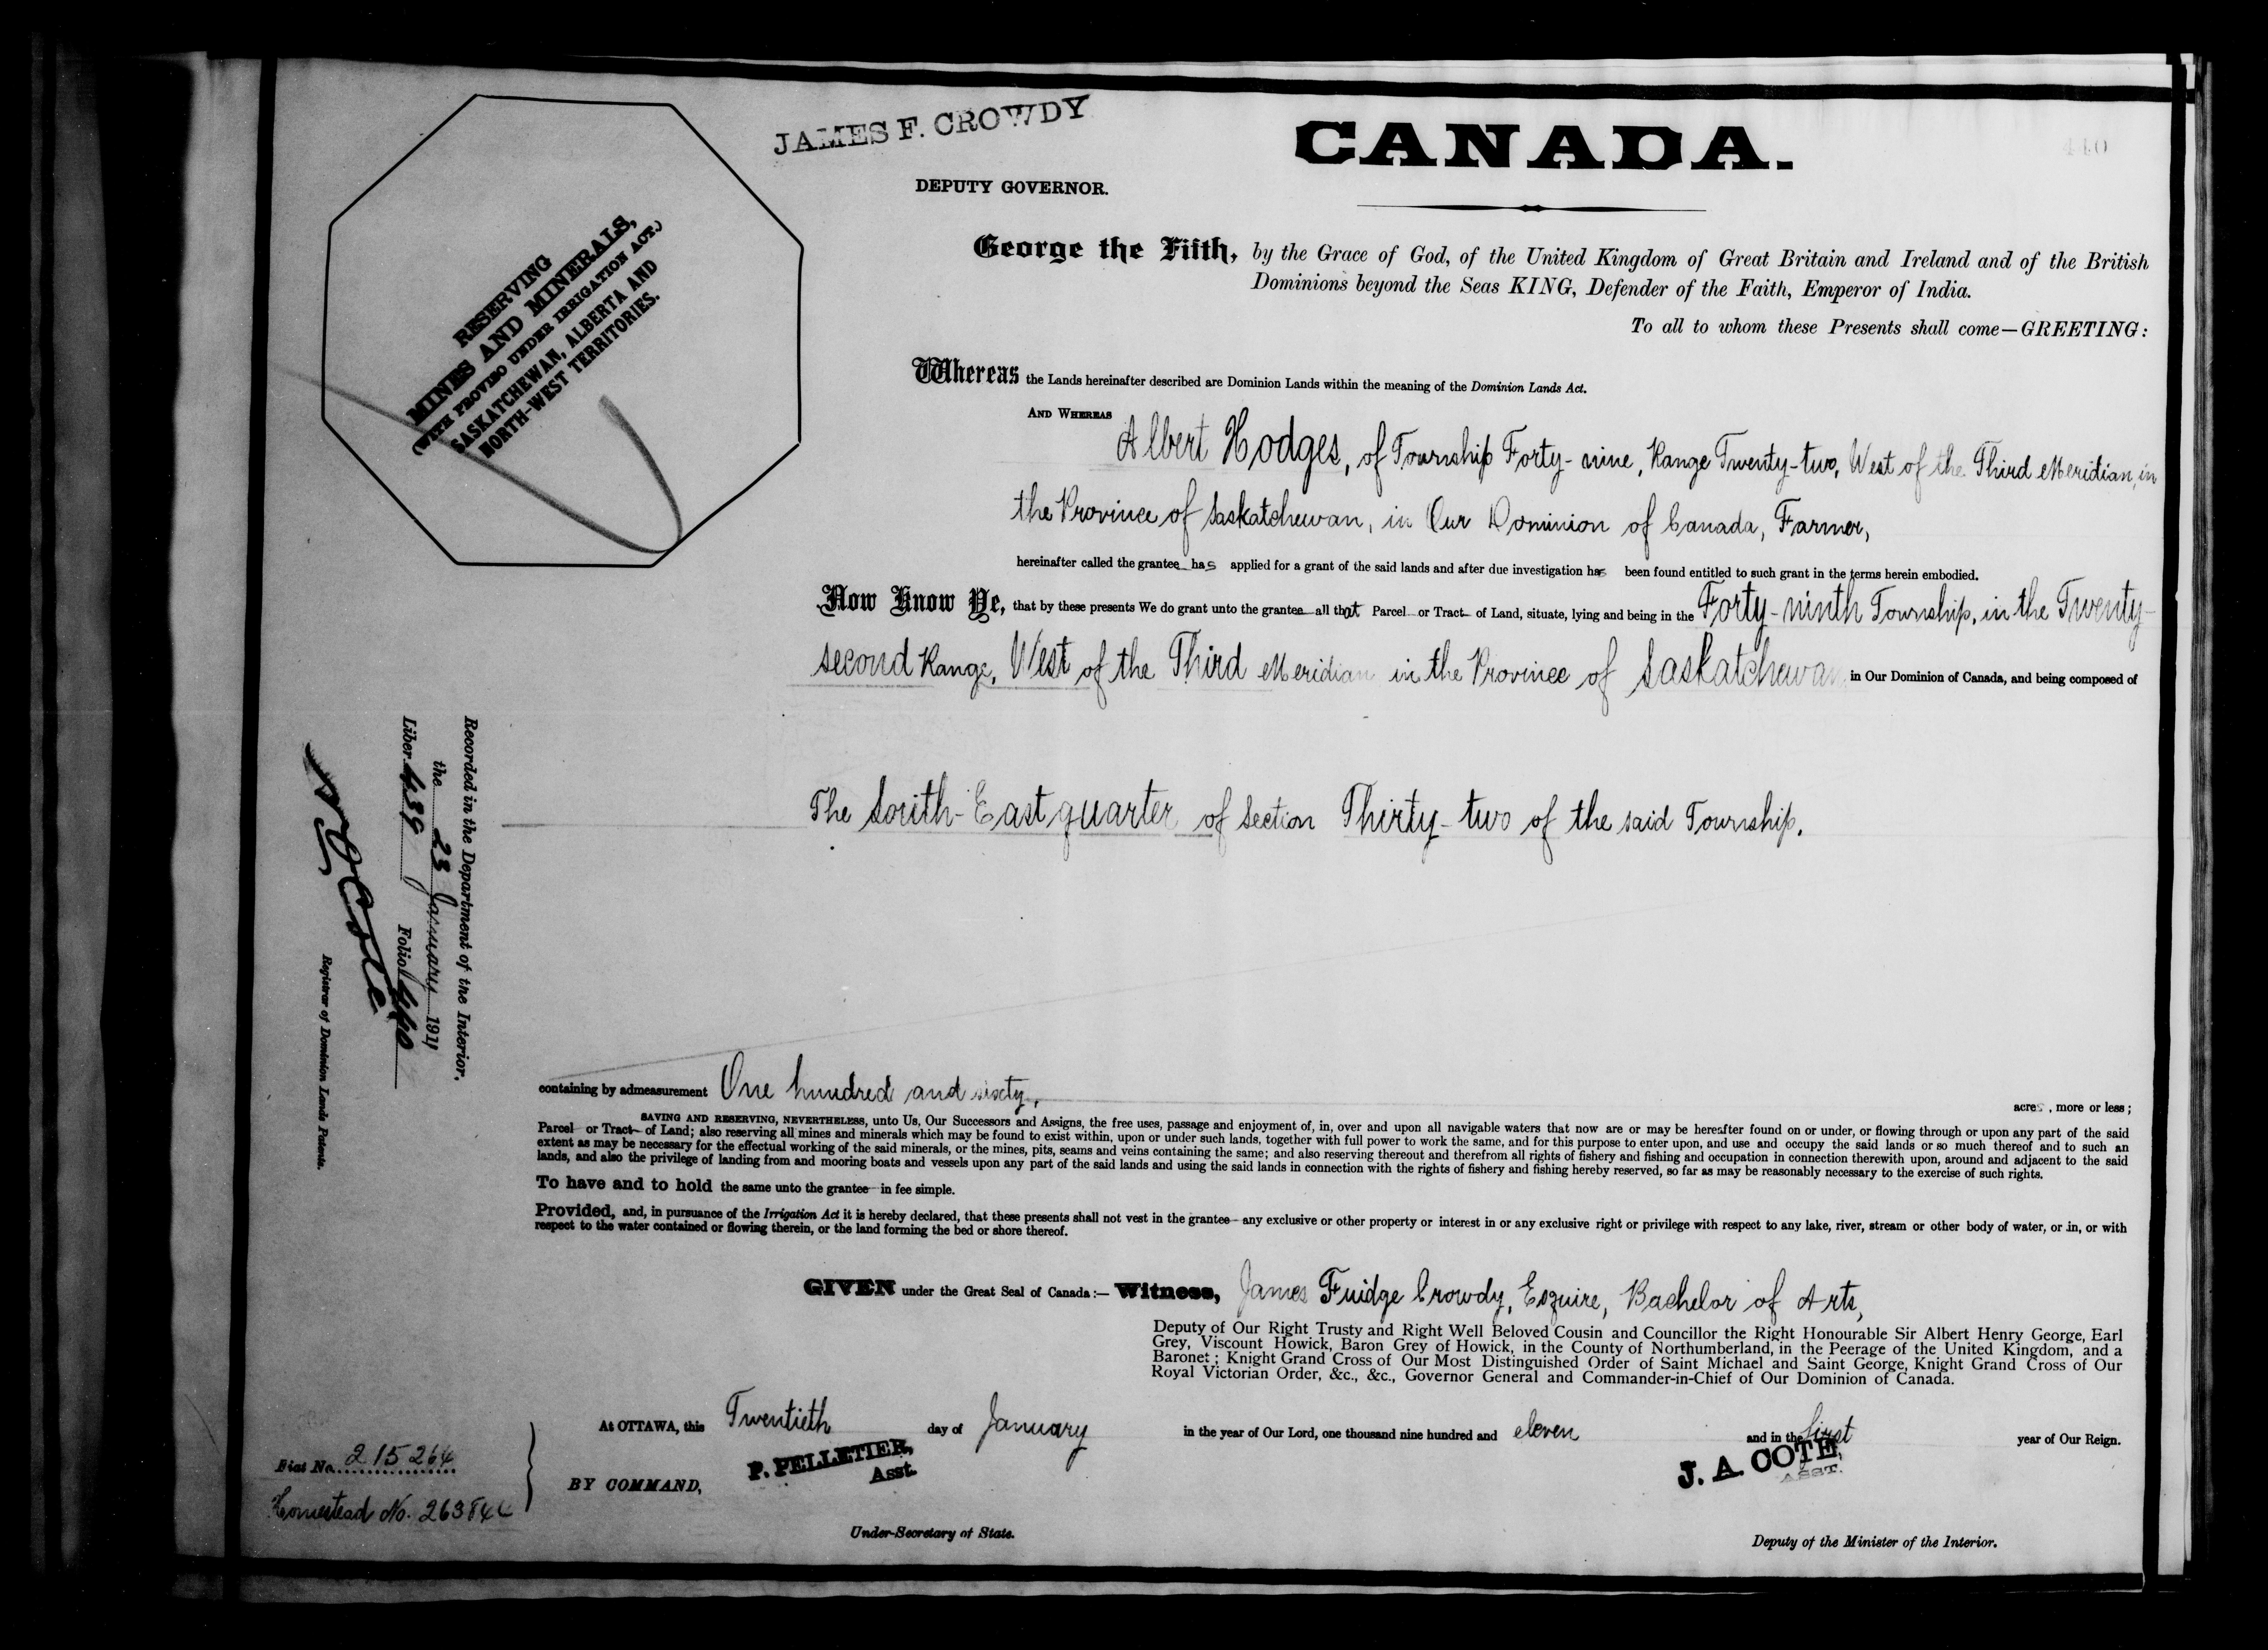 JAMES F. CROWDY
DEPUTY GOVERNOR.
CANADA.
440
RESERVING
MINES AND MINERALS,
(WITH PROVISO UNDER IRRIGATION ACT.)
SASKATCHEWAN, ALBERTA AND
NORTH-WEST TERRITORIES.
George the Fifth, by the Grace of God, of the United Kingdom of Great Britain and Ireland and of the British
Dominions beyond the Seas KING, Defender of the Faith, Emperor of India.
To all to whom these Presents shall come—GREETING:
Whereas the Lands hereinafter described are Dominion Lands within the meaning of the Dominion Lands Act.
AND WHEREAS
Albert Hodges, of Township Forty-nine, Range Twenty-two, West of the Third Meridian, in
the Province of Saskatchewan, in Our Dominion of Canada, Farmer,
hereinafter called the grantee has applied for a grant of the said lands and after due investigation has been found entitled to such grant in the terms herein embodied.
Now Know Ye, that by these presents We do grant unto the grantee all that Parcel or Tract of Land, situate, lying and being in the Forty-ninth Township, in the Twenty-
second Range, West of the Third Meridian in the Province of Saskatchewan in Our Dominion of Canada, and being composed of
The South-East quarter of Section Thirty-two of the said Township.
Recorded in the Department of the Interior.
the 23 January 1911
Liber 439 Folio 440
Registrar of Dominion Lands Patents.
containing by admeasurement One hundred and sixty, acres, more or less;
SAVING AND RESERVING, NEVERTHELESS, unto Us, Our Successors and Assigns, the free uses, passage and enjoyment of, in, over and upon all navigable waters that now are or may be hereafter found on or under, or flowing through or upon any part of the said
Parcel or Tract of Land; also reserving all mines and minerals which may be found to exist within, upon or under such lands, together with full power to work the same, and for this purpose to enter upon, and use and occupy the said lands or so much thereof and to such an
extent as may be necessary for the effectual working of the said minerals, or the mines, pits, seams and veins containing the same; and also reserving thereout and therefrom all rights of fishery and fishing and occupation in connection therewith upon, around and adjacent to the said
lands, and also the privilege of landing from and mooring boats and vessels upon any part of the said lands and using the said lands in connection with the rights of fishery and fishing hereby reserved, so far as may be reasonably necessary to the exercise of such rights.
To have and to hold the same unto the grantee in fee simple.
Provided, and, in pursuance of the Irrigation Act it is hereby declared, that these presents shall not vest in the grantee any exclusive or other property or interest in or any exclusive right or privilege with respect to any lake, river, stream or other body of water, or in, or with
respect to the water contained or flowing therein, or the land forming the bed or shore thereof.
GIVEN under the Great Seal of Canada:— Witness, James Fuidge Crowdy, Esquire, Bachelor of Arts,
Deputy of Our Right Trusty and Right Well Beloved Cousin and Councillor the Right Honourable Sir Albert Henry George, Earl
Grey, Viscount Howick, Baron Grey of Howick, in the County of Northumberland, in the Peerage of the United Kingdom, and a
Baronet; Knight Grand Cross of Our Most Distinguished Order of Saint Michael and Saint George, Knight Grand Cross of Our
Royal Victorian Order, &c., &c., Governor General and Commander-in-Chief of Our Dominion of Canada.
At OTTAWA, this Twentieth day of January in the year of Our Lord, one thousand nine hundred and eleven and in the first year of Our Reign.
BY COMMAND,
P. PELLETIER,
Asst.
Under-Secretary of State.
J. A. COTE,
ASST.
Deputy of the Minister of the Interior.
Fiat No. 215264
Homestead No.